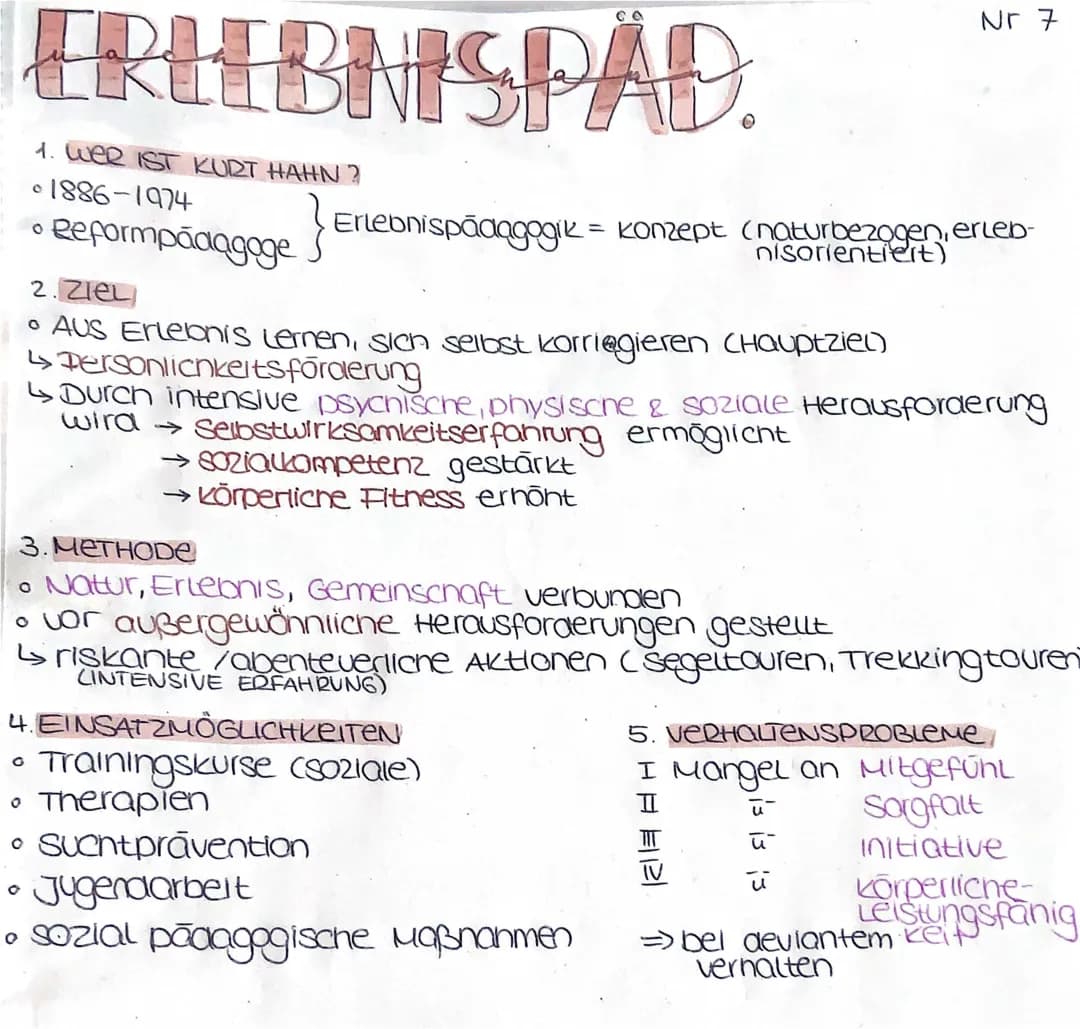 Nr 7
ERLEBNISPÄD.
nach Kurt Hahn
1. WER IST KURT HAHN?
◦ 1886-1974
◦ Reformpädagoge } Erlebnispädagogik = Konzept (naturbezogen, erleb-
nisorientiert)
2. ZIEL
◦ AUS Erlebnis lernen, sich selbst korriegieren (Hauptziel)
↳ Persönlichkeitsförderung
↳ Durch intensive psychische, physische & soziale Herausforderung
wird → Selbstwirksamkeitserfahrung ermöglicht
→ Sozialkompetenz gestärkt
→ körperliche Fitness erhöht
3. METHODE
◦ Natur, Erlebnis, Gemeinschaft verbunden
◦ vor außergewöhnliche Herausforderungen gestellt
↳ riskante / abenteuerliche Aktionen (Segeltouren, Trekkingtouren
(INTENSIVE ERFAHRUNG)
4. EINSATZMÖGLICHKEITEN
◦ Trainingskurse (soziale)
◦ Therapien
◦ Suchtprävention
◦ Jugendarbeit
◦ sozial pädagogische Maßnahmen
5. VERHALTENSPROBLEME
I Mangel an Mitgefühl
II -ü- Sorgfalt
III -ü- Initiative
IV -ü- körperliche-
Leistungsfähig
keit
⇒ bei deviantem
verhalten